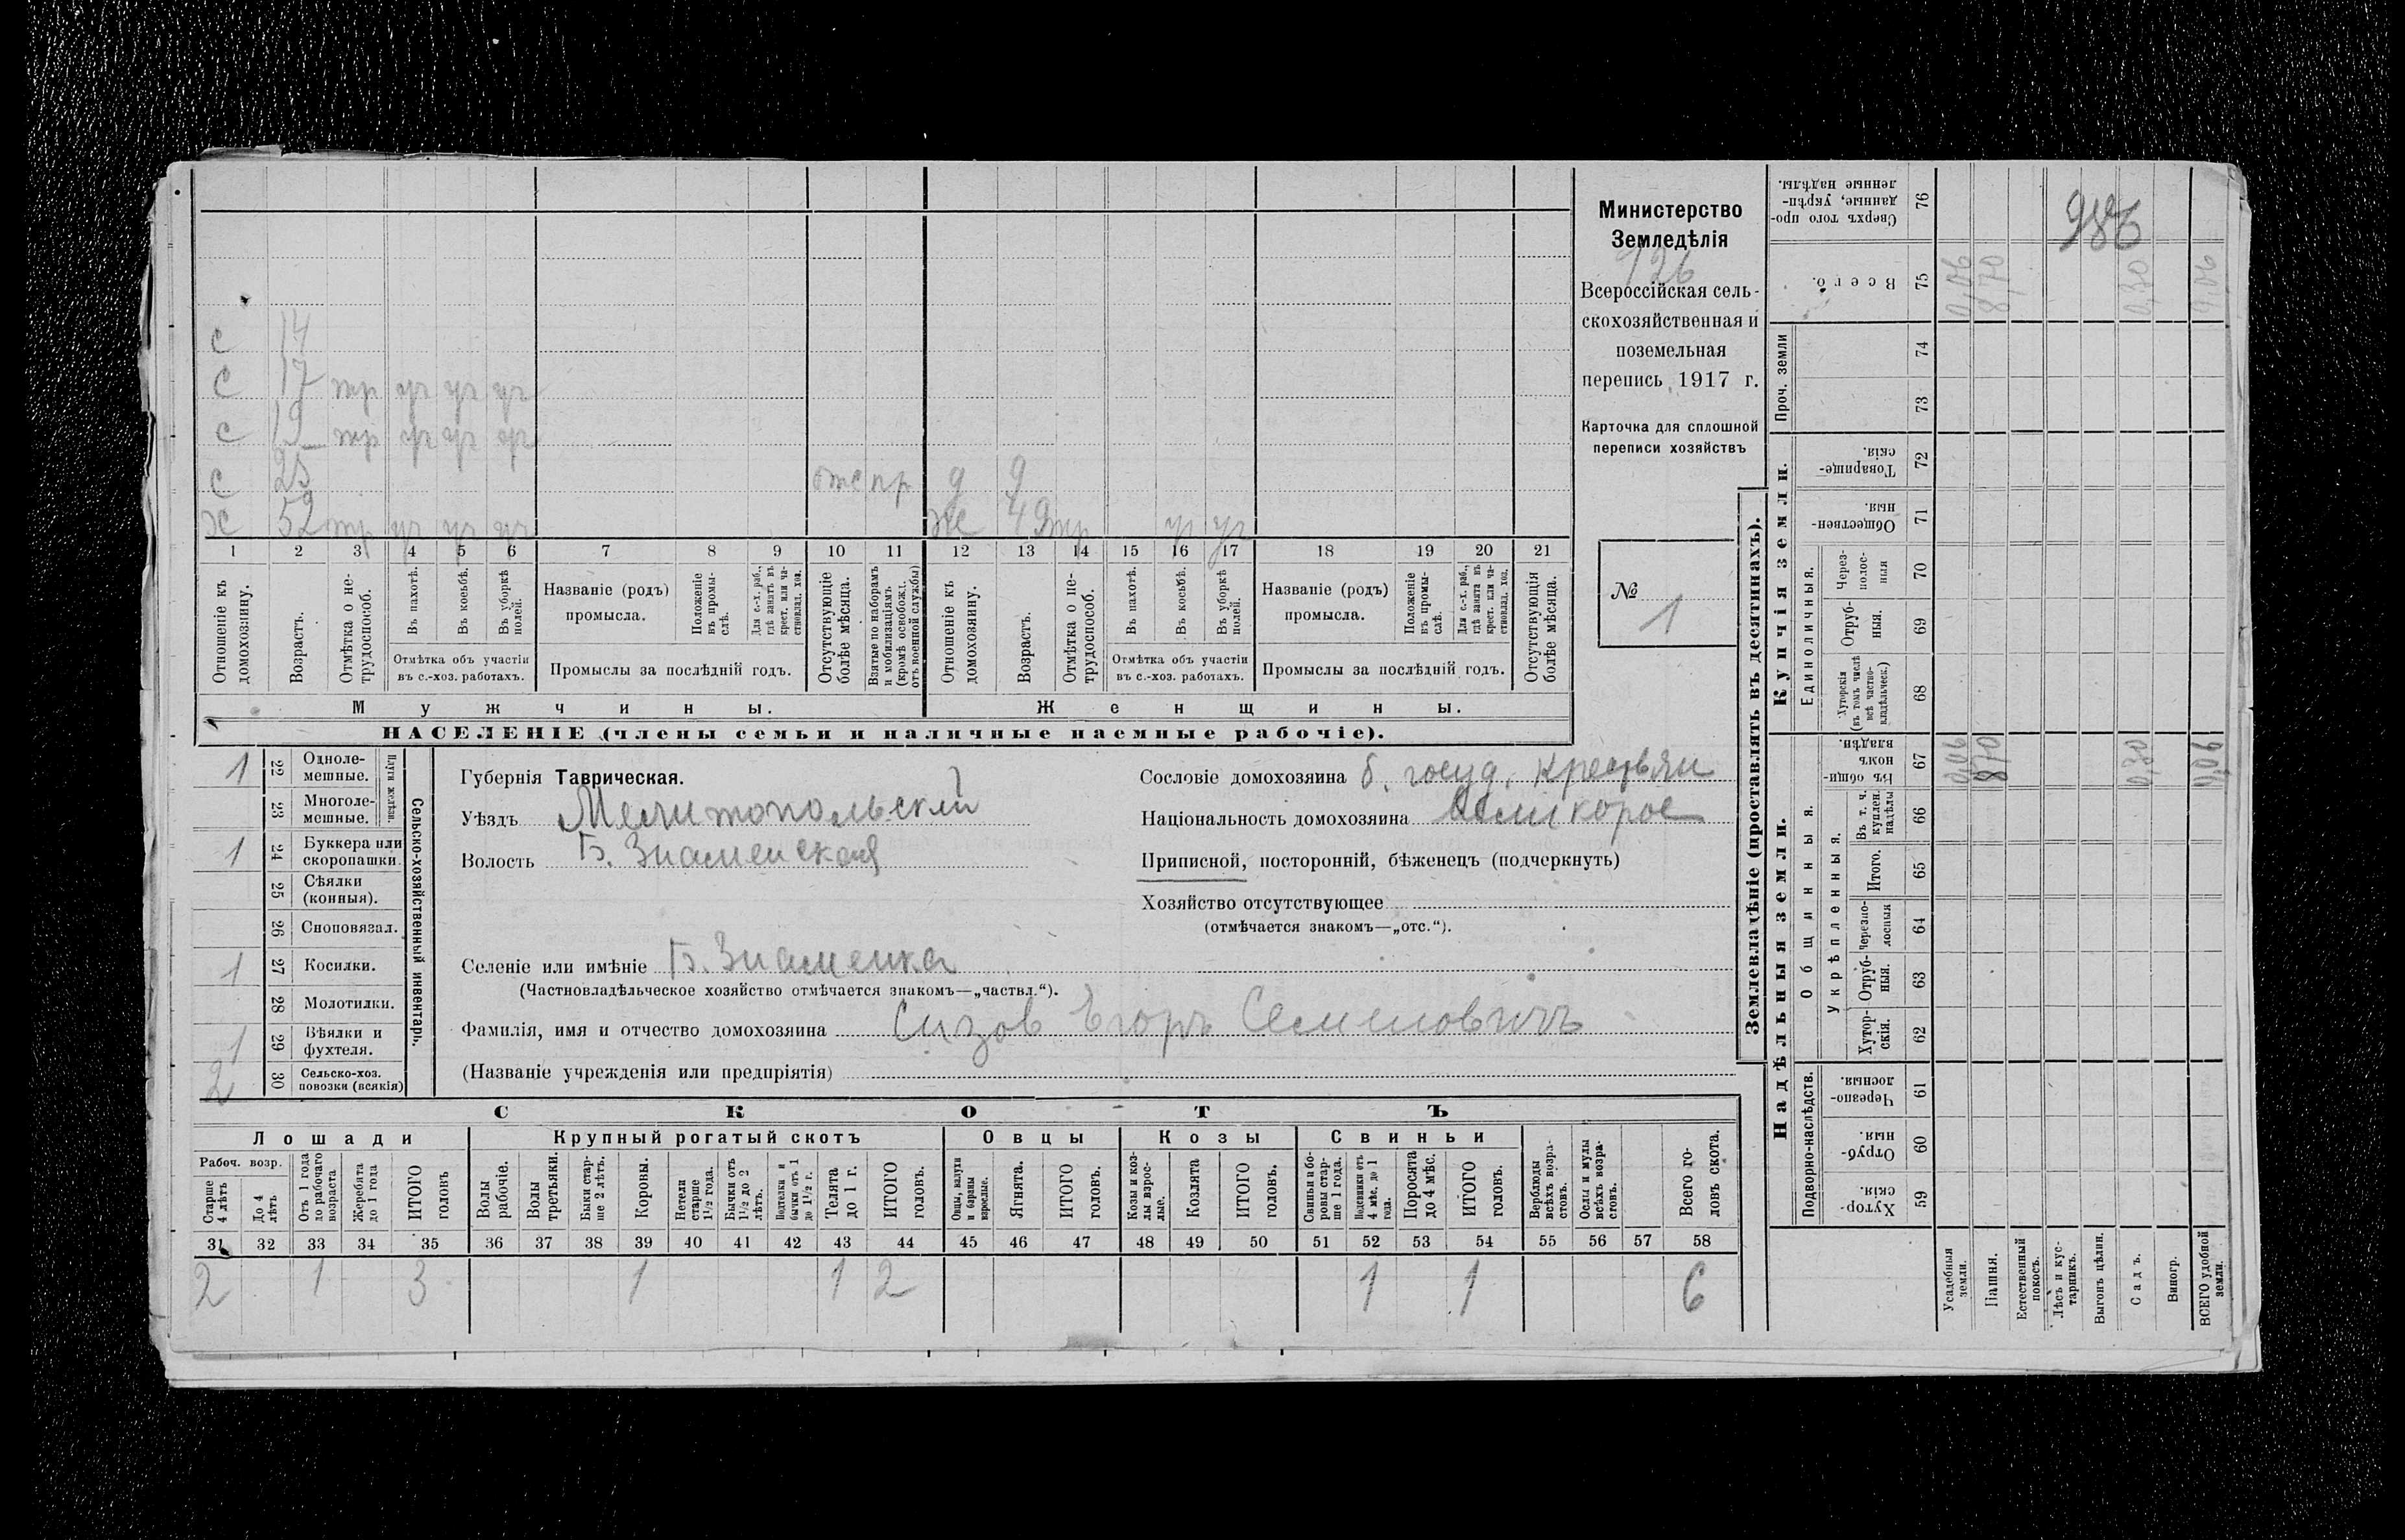 Министерство
Земледѣлія
126
Всероссійская сель-
скохозяйственная и
поземельная
перепись 1917 г.
Карточка для сплошной
переписи хозяйствъ
№ 1
с 14
с 17 тр уч уч уч
с 19 тр уч уч уч
с 25 отс пр д 9
х 52 тр уч уч уч же 49 тр уч уч
1 2 3 4 5 6 7 8 9 10 11 12 13 14 15 16 17 18 19 20 21
Отношеніе къ домохозяину.
Возрастъ.
Отмѣтка о не-трудоспособ.
Въ пахотѣ.
Въ косьбѣ.
Въ уборкѣ полей.
Отмѣтка объ участіи
въ с.-хоз. работахъ.
Названіе (родъ)
промысла.
Положеніе въ промы-слѣ.
Для с.-х. раб., гдѣ занятъ въ крест. или ча-стновлад. хоз.
Промыслы за послѣдній годъ.
Отсутствующіе болѣе мѣсяца.
Взятые по наборамъ и мобилизаціямъ (кромѣ освобож. отъ военной службы)
Отношеніе къ домохозяину.
Возрастъ.
Отмѣтка о не-трудоспособ.
Въ пахотѣ.
Въ косьбѣ.
Въ уборкѣ полей.
Отмѣтка объ участіи
въ с.-хоз. работахъ.
Названіе (родъ)
промысла.
Положеніе въ промы-слѣ.
Для с.-х. раб., гдѣ занята въ крест. или ча-стновлад. хоз.
Промыслы за послѣдній годъ.
Отсутствующія болѣе мѣсяца.
Мужчины.
Женщины.
НАСЕЛЕНІЕ (члены семьи и наличные наемные рабочіе).
Сельско-хозяйственный инвентарь.
Плуги желѣзн.
1 22 Одноле-мешные.
23 Многоле-мешные.
1 24 Буккера или скоропашки.
25 Сѣялки (конныя).
26 Сноповязал.
1 27 Косилки.
28 Молотилки.
1 29 Вѣялки и фухтеля.
2 30 Сельско-хоз. повозки (всякія)
Губернія Таврическая.
Уѣздъ Мелитопольскій
Волость Б. Знаменская
Сословіе домохозяина б. госуд. крестьян
Національность домохозяина великорос
Приписной, посторонній, бѣженецъ (подчеркнуть)
Хозяйство отсутствующее
(отмѣчается знакомъ—„отс.“).
Селеніе или имѣніе Б. Знаменка
(Частновладѣльческое хозяйство отмѣчается знакомъ—„частвл.“).
Фамилія, имя и отчество домохозяина Сизов Егоръ Семеновичъ
(Названіе учрежденія или предпріятія)
СКОТЪ
Лошади
Крупный рогатый скотъ
Овцы
Козы
Свиньи
Рабоч. возр.
Старше 4 лѣтъ
До 4 лѣтъ
Отъ 1 года до рабочаго возраста
Жеребята до 1 года
ИТОГО головъ
Волы рабочіе.
Волы третьяки.
Быки стар-ше 2 лѣтъ.
Коровы.
Нетели старше 1½ года.
Бычки отъ 1½ до 2 лѣтъ.
Подтелки и бычки отъ 1 до 1½ г.
Телята до 1 г.
ИТОГО головъ.
Овцы, валухи и бараны взрослые.
Ягнята.
ИТОГО головъ.
Козы и коз-лы взрос-лые.
Козлята
ИТОГО головъ.
Свиньи и бо-ровы стар-ше 1 года.
Подсвинки отъ 4 мѣс. до 1 года.
Поросята до 4 мѣс.
ИТОГО головъ.
Верблюды всѣхъ возра-стовъ.
Ослы и мулы всѣхъ возра-стовъ.
Всего го-ловъ скота.
31 32 33 34 35 36 37 38 39 40 41 42 43 44 45 46 47 48 49 50 51 52 53 54 55 56 57 58
2 1 3 1 1 2 1 1 6
Землевладѣніе (проставлять въ десятинахъ).
Надѣльныя земли.
Купчія земли.
Проч. земли
Подворно-наслѣдств.
Общинныя.
Укрѣпленныя.
Единоличныя.
Хутор-скія. 59
Отруб-ныя. 60
Черезпо-лосныя. 61
Хутор-скія. 62
Отруб-ныя. 63
Черезпо-лосныя 64
Итого. 65
Въ т. ч. куплен. надѣлы 66
Въ общин-номъ владѣн. 67
Хуторскія (въ томъ числѣ всѣ частно-владѣльческ.) 68
Отруб-ныя. 69
Через-полос-ныя 70
Обществен-ныя. 71
Товарище-скія. 72
73
74
Всего. 75
Сверхъ того про-данные, укрѣп-ленные надѣлы. 76
Усадебныя земли. 0,06 0,06
Пашня. 8,70 8,70
Естественный покосъ.
Лѣсъ и кус-тарникъ.
Выгонъ цѣлин.
Садъ. 0,30 0,30
Виногр.
ВСЕГО удобной земли. 9,06 9,06
986